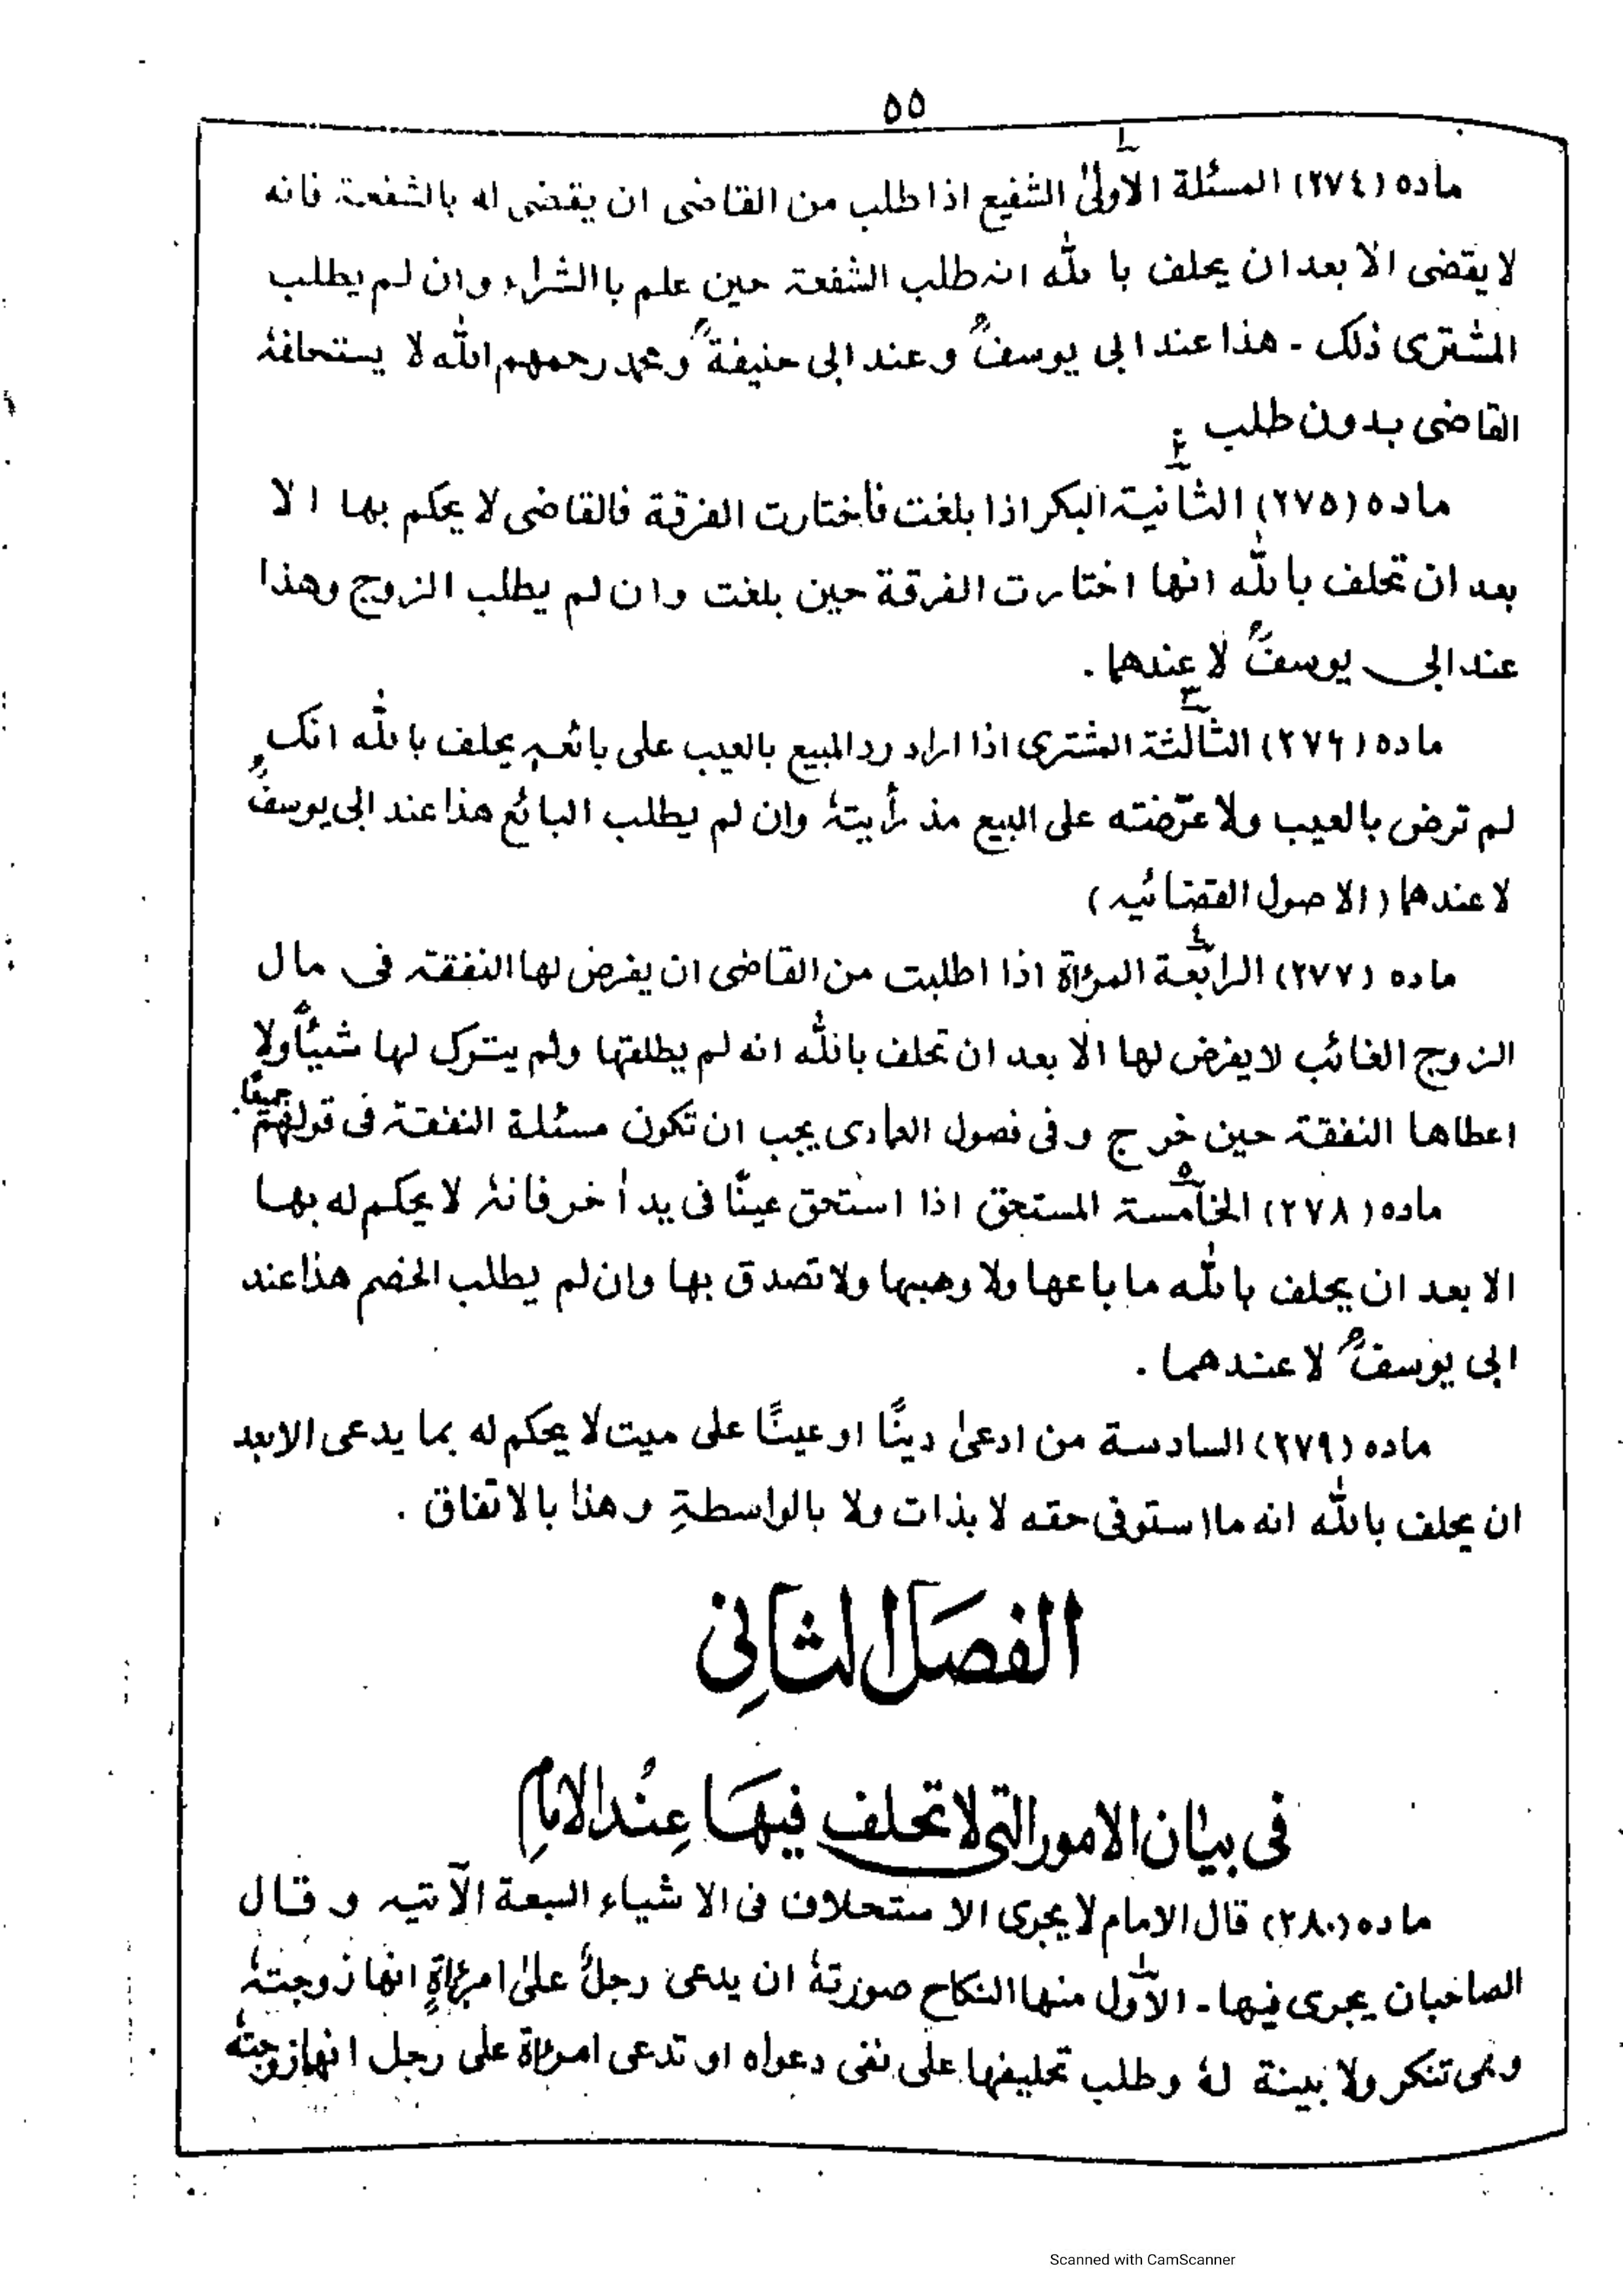 ٥٥
ماده (٢٧٤) المسئلة الاولىٰ الشفيع اذا طلب من القاضى ان يقضى له بالشفعة فانه
لا يقضى الا بعد ان يحلف با لله انه طلب الشفعة حين علم باالشراء وان لم يطلب
المشترى ذلك - هذا عند ابى يوسفؒ وعند ابى حنيفةؒ ومحمد رحمهم الله لا يستحلفهٗ
القاضى بدون طلب
ماده (٢٧٥) الثانية البكر اذا بلغت فأختارت الفرقة فالقاضى لا يحكم بها الا
بعد ان تحلف بالله انها اختارت الفرقة حين بلغت وان لم يطلب الزوج وهذا
عند ابى يوسفؒ لا عندهما .
ماده (٢٧٦) الثالثة المشترى اذا اراد رد المبيع بالعيب على بائعه يحلف بالله انك
لم ترض بالعيب ولا عرّضته على البيع مذ رأيتهٗ وان لم يطلب البائع هذا عند ابى يوسفؒ
لا عندهما (الاصول القضائيه)
ماده (٢٧٧) الرابعة المرؤاة اذا اطلبت من القاضى ان يفرض لها النفقة فى مال
الزوج الغائب لا يفرض لها الا بعد ان تحلف بالله انه لم يطلقها ولم يترك لها شيئًا ولا
اعطاها النفقة حين خرج وفى فصول العمادى يجب ان تكون مسئلة النفقة فى قولهم جميعًا.
ماده (٢٧٨) الخامسة المستحق اذا استحق عينًا فى يد أخر فانهٗ لا يحكم له بها
الا بعد ان يحلف بالله ما باعها ولا وهبها ولا تصدق بها وان لم يطلب الخضم هذا عند
ابى يوسفؒ لا عندهما .
ماده (٢٧٩) السادسة من ادعىٰ دينًا او عينًا على ميت لا يحكم له بما يدعى الا بعد
ان يحلف بالله انه ما استوفى حقه لا بذات ولا بالواسطةِ وهذا بالاتفاق .
الفصل الثانِى
فى بيان الامور التى لا تحلف فيها عند الامامِ
ماده (٢٨٠) قال الامام لا يجرى الا ستحلاف فى الا شياء السبعة الآتيه وقال
الصاحبان يجرى فيها - الاول منها النكاح صورتهٗ ان يدعى رجلٌ علىٰ امرؤاةٍ انها زوجتهٗ
وهى تنكر ولا بينة لهٗ وطلب تحليفها على نفى دعواه او تدعى امرؤاة على رجل انها زوجتهٗ
Scanned with CamScanner